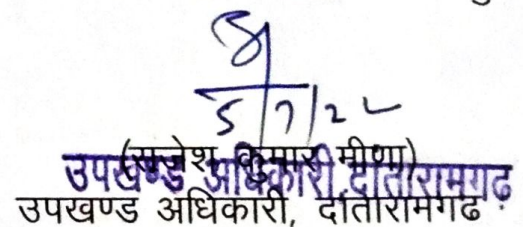 5/7/22
(राजेश कुमार मीणा)
उपखण्ड अधिकारी, दांतारामगढ़
उपखण्ड अधिकारी, दांतारामगढ